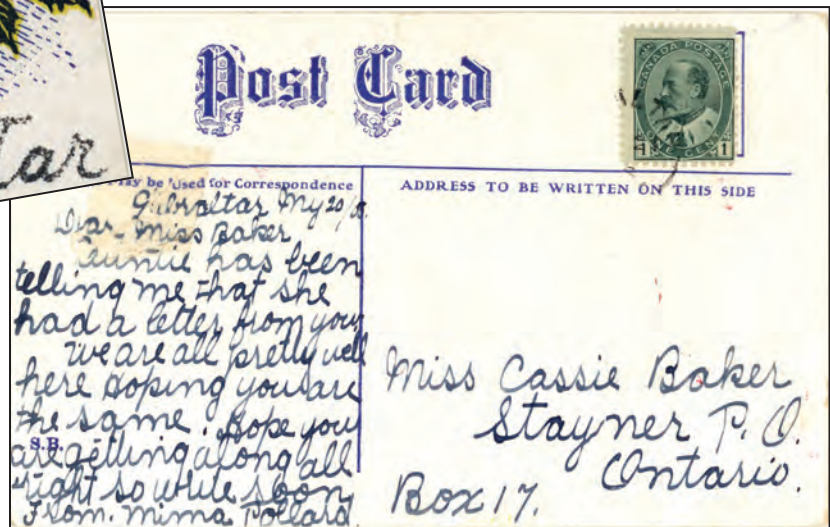 tar
Post Card
CANADA POSTAGE
ONE CENT
1 1
ay be Used for Correspondence
ADDRESS TO BE WRITTEN ON THIS SIDE
Gibraltar My 20/08.
Dear Miss Baker
Auntie has been
telling me that she
had a letter from you,
we are all pretty well
here hoping you are
the same. hope you
S.B.
are getting along all
right so write soon
From. Mima Pollard
Miss Cassie Baker
Stayner P. O.
Ontario.
Box 17.